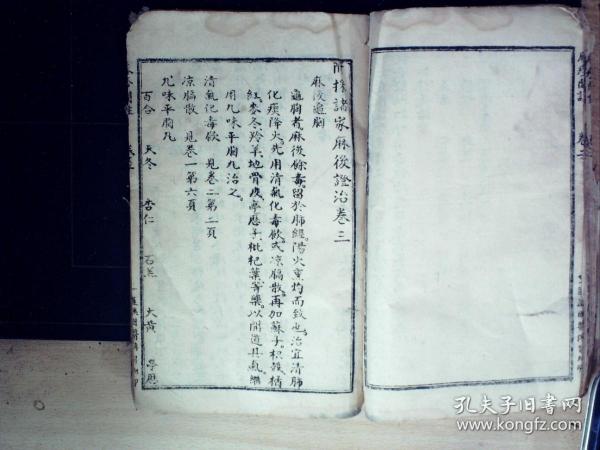 附採諸家麻後證治卷三
麻後龜胸
龜胸者麻後餘毒留於肺經陽火熏灼而致也治宜清肺
化痰降火先用清氣化毒飲式凉膈散再加蘇子枳殼栝
紅麥冬羚羊地骨皮葶藶子枇杷葉等藥以開道其氣繼
用九味平胸丸治之
清氣化毒飲 見卷二第二頁
凉膈散 見卷一第六頁
九味平胸丸
百合 天冬 杏仁 石羔 大黄
孔夫子旧书网
www.kongfz.com